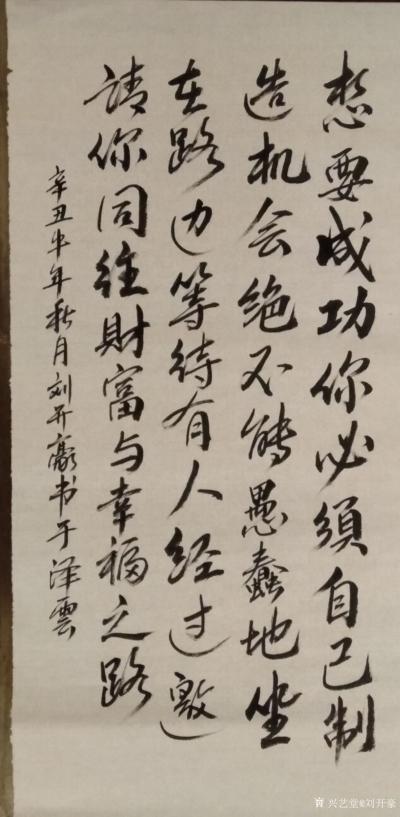 想要成功你必須自己制
造机会绝不能愚蠢地坐
在路边等待有人经过邀
請你同往财富与幸福之路
辛丑牛年秋月刘开豪书于泽雲
兴艺堂@刘开豪